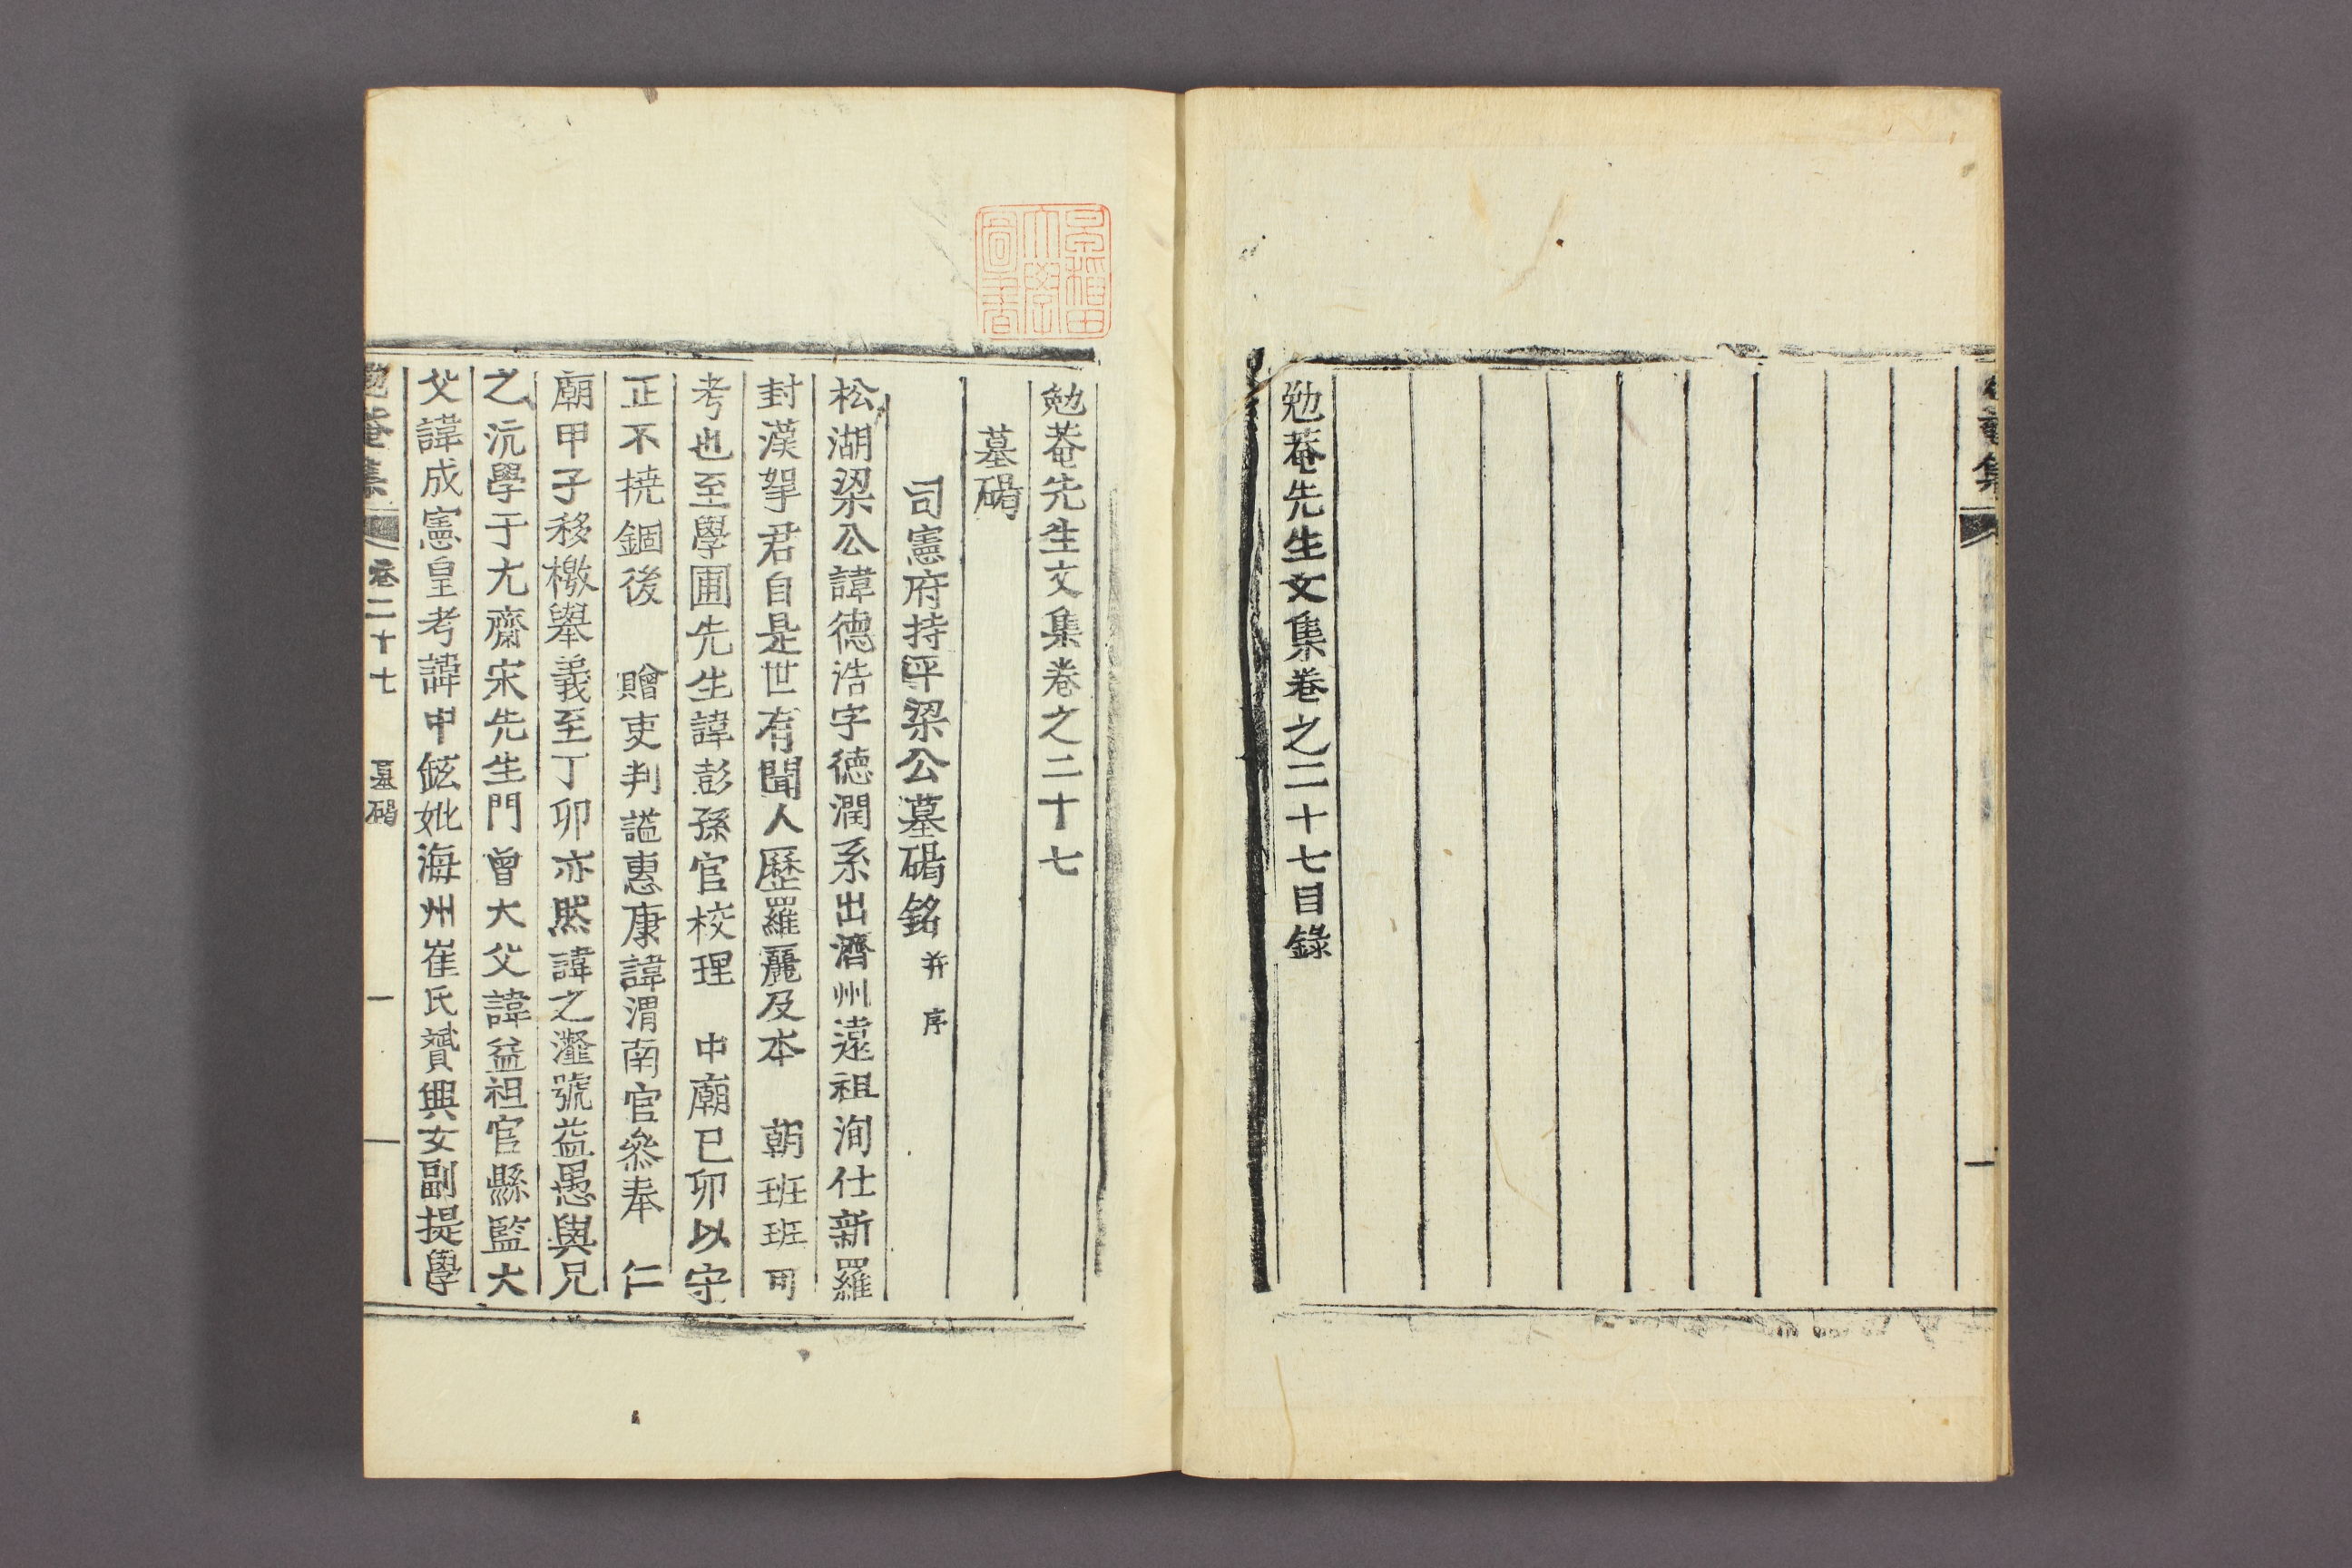 勉菴先生文集卷之二十七目錄
勉菴先生文集卷之二十七
墓碣
司憲府持平梁公墓碣銘 并序
松湖梁公諱德浩字德潤系出濟州遠祖洵仕新羅
封漢挐君自是世有聞人歷羅麗及本 朝班班司
考也至學圃先生諱彭孫官校理 中廟己卯以守
正不撓錮後 贈吏判謚惠康諱渭南官參奉 仁
廟甲子移檄舉義至丁卯亦然諱之瀣號益愚與兄
之沅學于尤齋宋先生門曾大父諱益祖官縣監大
父諱成憲皇考諱中鉉妣海州崔氏贇興女副提學
勉菴集 卷二十七 墓碣 一
早稻田大學圖書